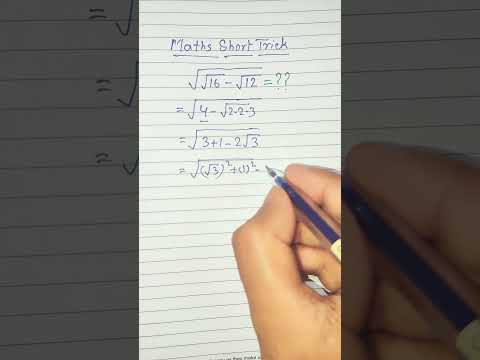 Maths Short Trick
√(√16 - √12) = ??
= √(4 - √(2·2·3))
= √(3+1 - 2√3)
= √((√3)² + (1)² -